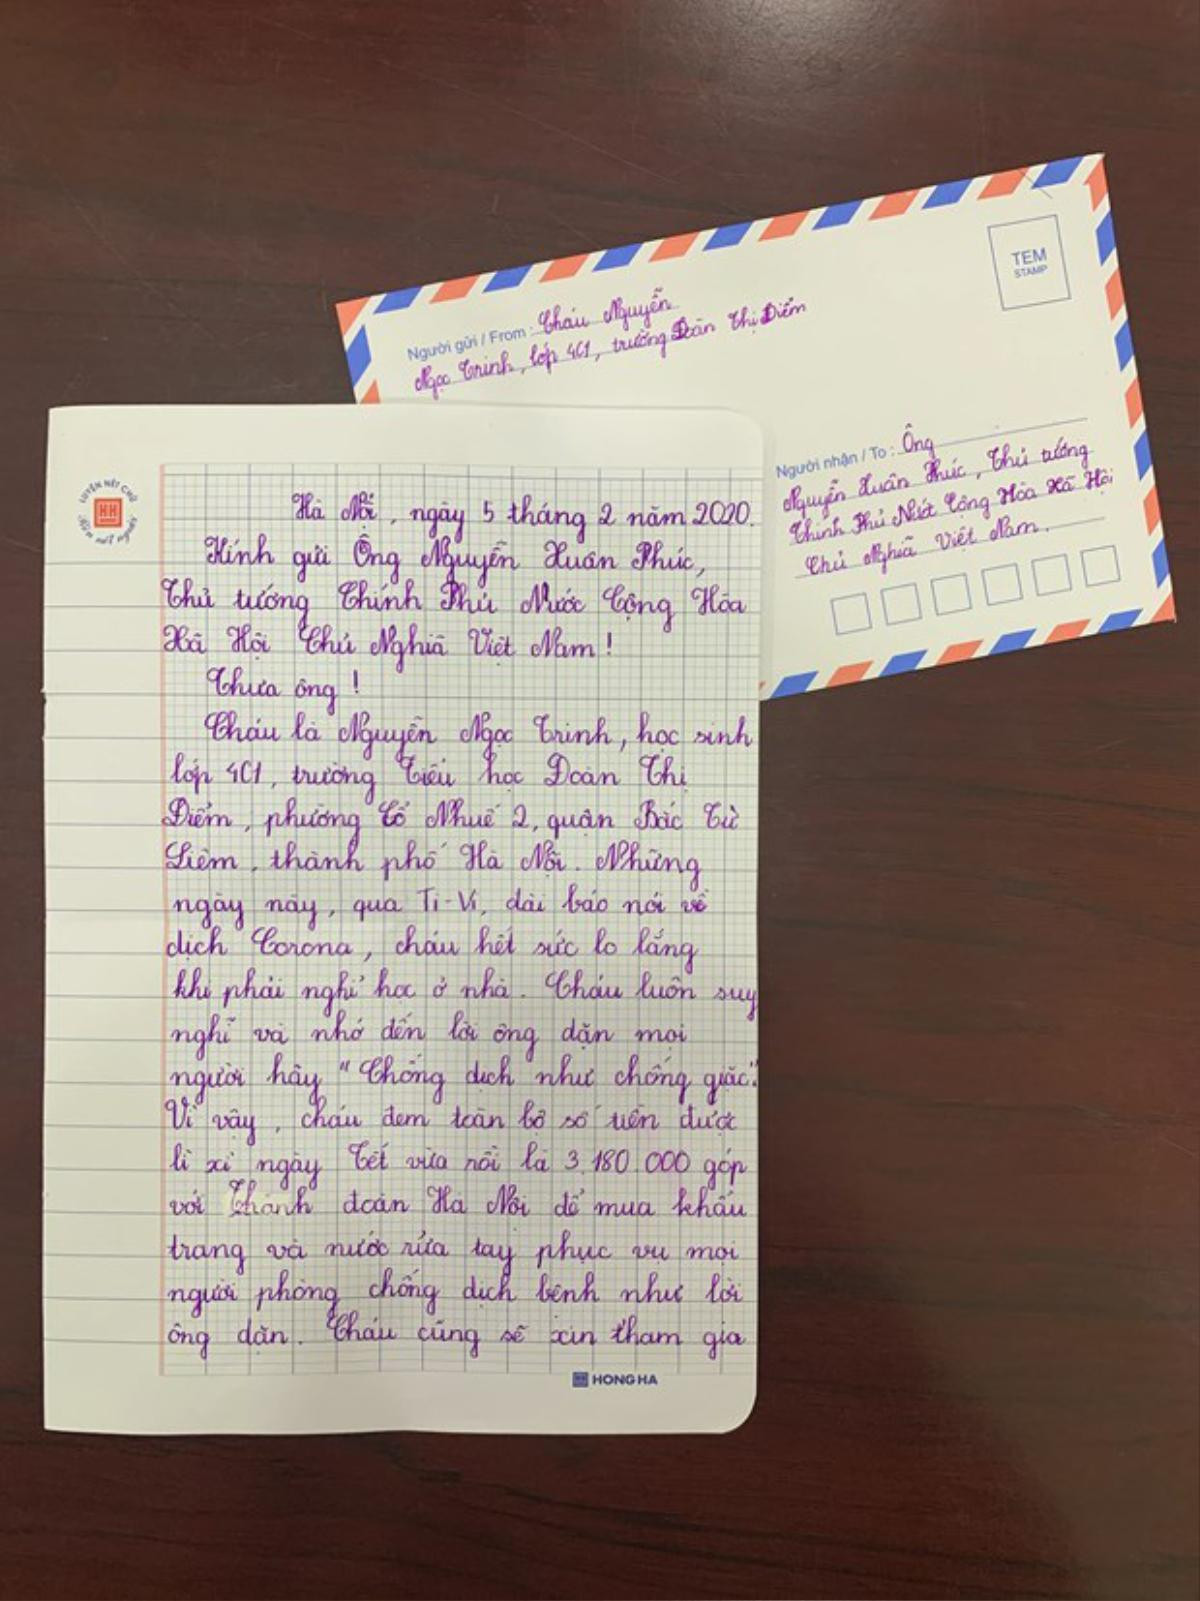 TEM
STAMP
Người gửi / From : Cháu Nguyễn
Ngọc Trinh, lớp 4C1, trường Đoàn Thị Điểm
Người nhận / To : Ông
Nguyễn Xuân Phúc, Thủ tướng
Chính Phủ Nước Cộng Hòa Xã Hội
Chủ Nghĩa Việt Nam.
LUYỆN NÉT CHỮ
RÈN NẾT NGƯỜI
HH
Hà Nội, ngày 5 tháng 2 năm 2020.
Kính gửi Ông Nguyễn Xuân Phúc,
Thủ tướng Chính Phủ Nước Cộng Hòa
Xã Hội Chủ Nghĩa Việt Nam !
Thưa ông !
Cháu là Nguyễn Ngọc Trinh, học sinh
lớp 4C1, trường Tiểu học Đoàn Thị
Điểm, phường Cổ Nhuế 2, quận Bắc Từ
Liêm, thành phố Hà Nội. Những
ngày này, qua Ti-Vi, đài báo nói về
dịch Corona, cháu hết sức lo lắng
khi phải nghỉ học ở nhà. Cháu luôn suy
nghĩ và nhớ đến lời ông dặn mọi
người hãy "Chống dịch như chống giặc".
Vì vậy, cháu đem toàn bộ số tiền được
lì xì ngày Tết vừa rồi là 3.180.000 góp
với Thành đoàn Hà Nội để mua khẩu
trang và nước rửa tay phục vụ mọi
người phòng chống dịch bệnh như lời
ông dặn. Cháu cũng sẽ xin tham gia
HONG HA